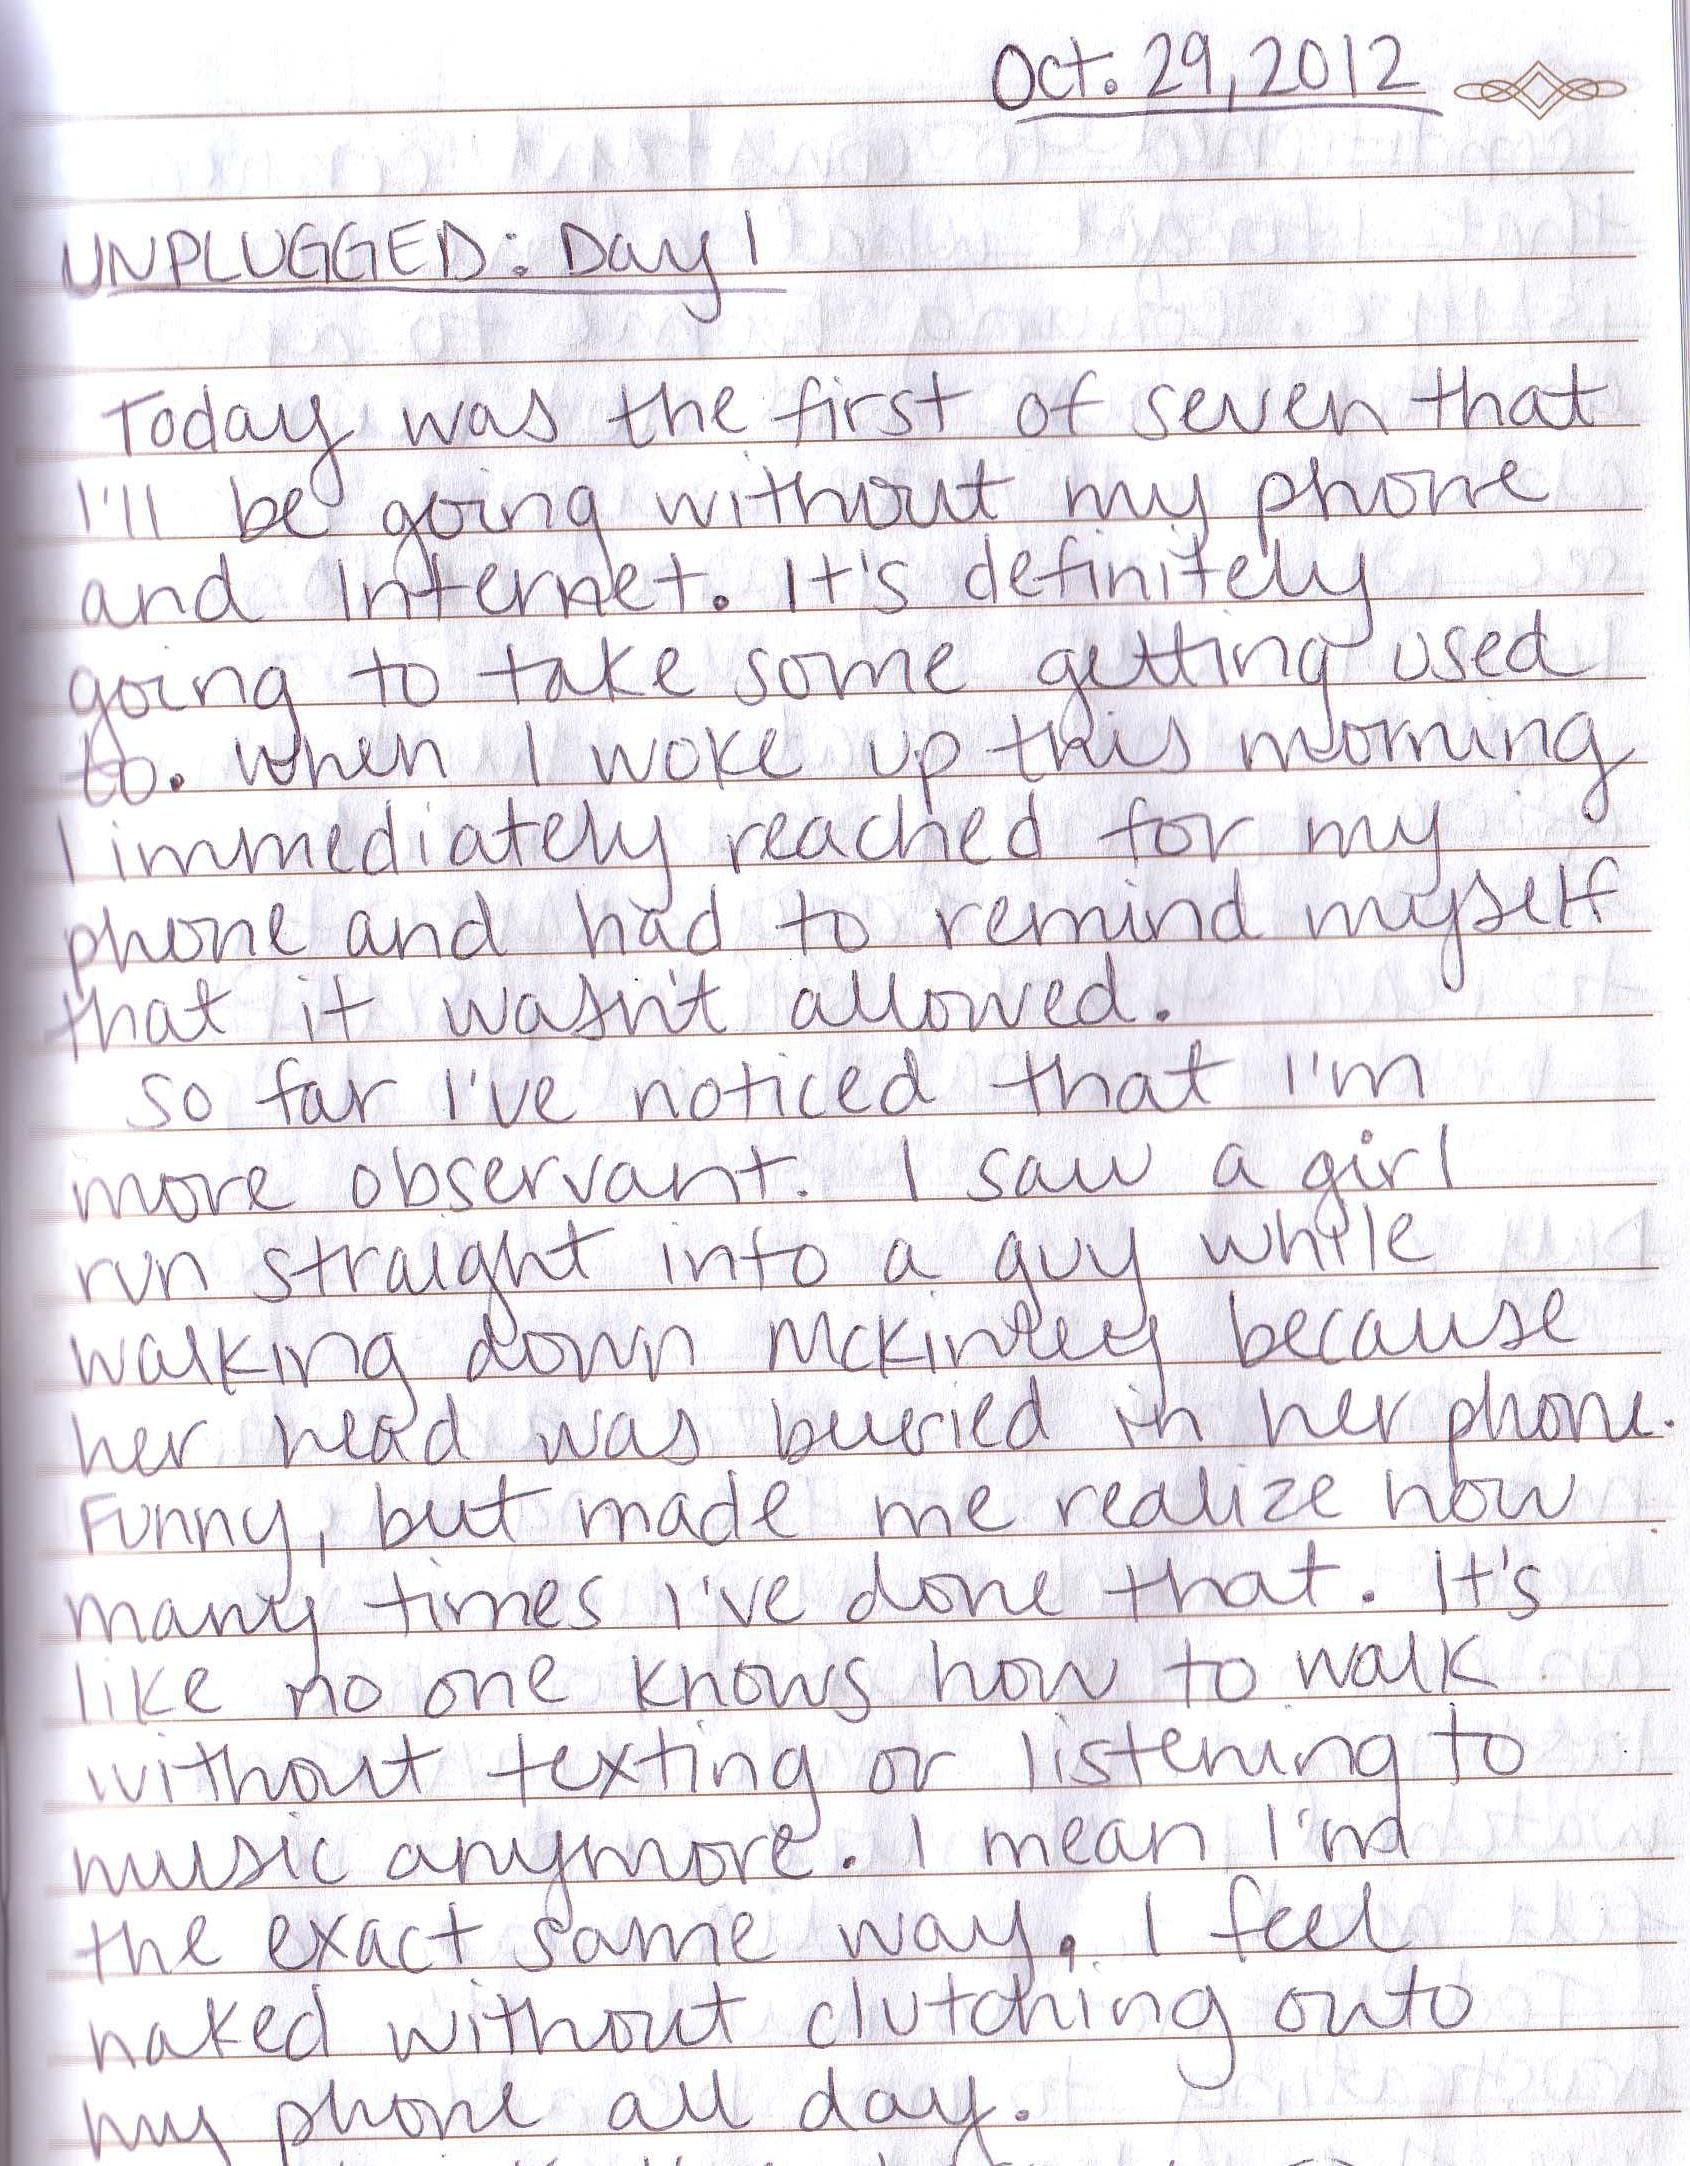 Oct. 29, 2012
UNPLUGGED: Day 1
Today was the first of seven that
I'll be going without my phone
and Internet. It's definitely
going to take some getting used
to. When I woke up this morning
I immediately reached for my
phone and had to remind myself
that it wasn't allowed.
So far I've noticed that I'm
more observant. I saw a girl
run straight into a guy while
walking down McKinley because
her head was buried in her phone.
Funny, but made me realize how
many times I've done that. It's
like no one knows how to walk
without texting or listening to
music anymore. I mean I'm
the exact same way. I feel
naked without clutching onto
my phone all day.